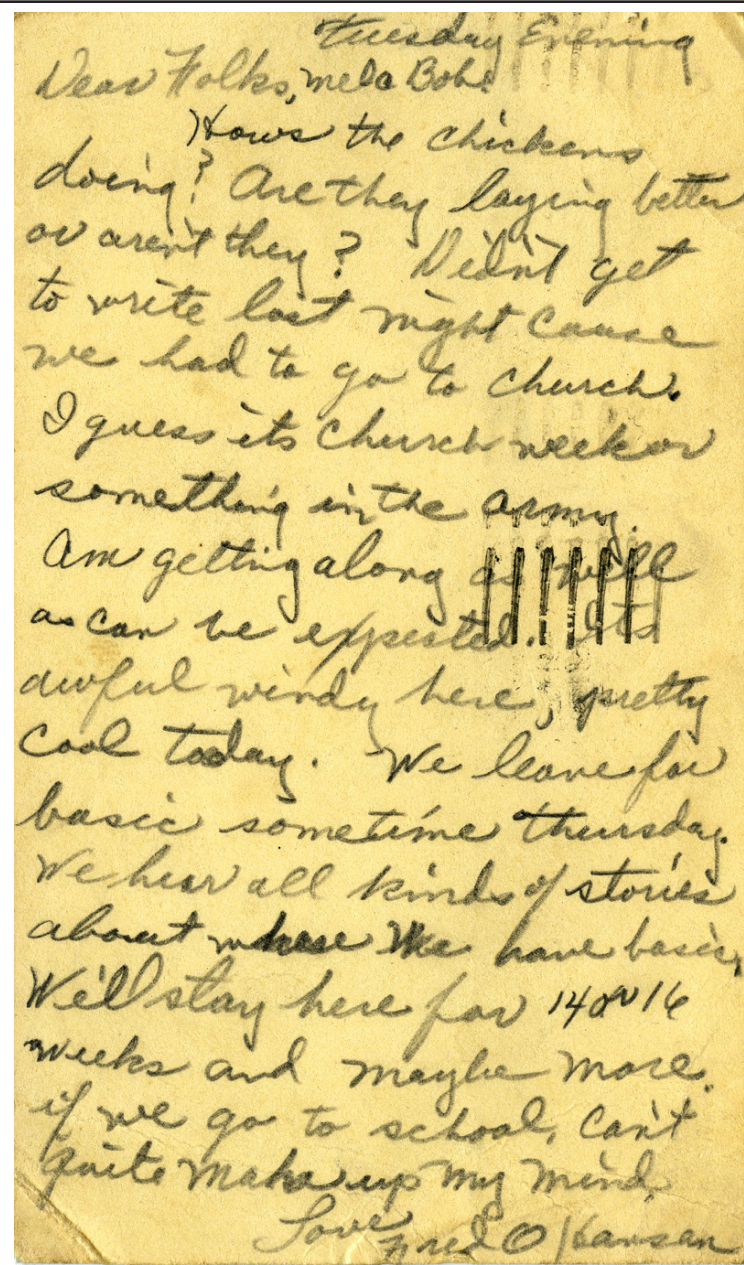 Tuesday Evening
Dear Folks, Mela Bob.
Hows the chickens
doing? Are they laying better
or aren't they? Didn't get
to write last night cause
we had to go to church.
I guess its church week or
something in the army.
Am getting along as well
as can be expected. Its
awful windy here, pretty
cool today. We leave for
basic sometime thursday.
We hear all kinds of stories
about where we have basic,
We'll stay here for 14 or 16
weeks and maybe more.
if we go to school, can't
quite make up my mind.
Love
Fred O Hansen